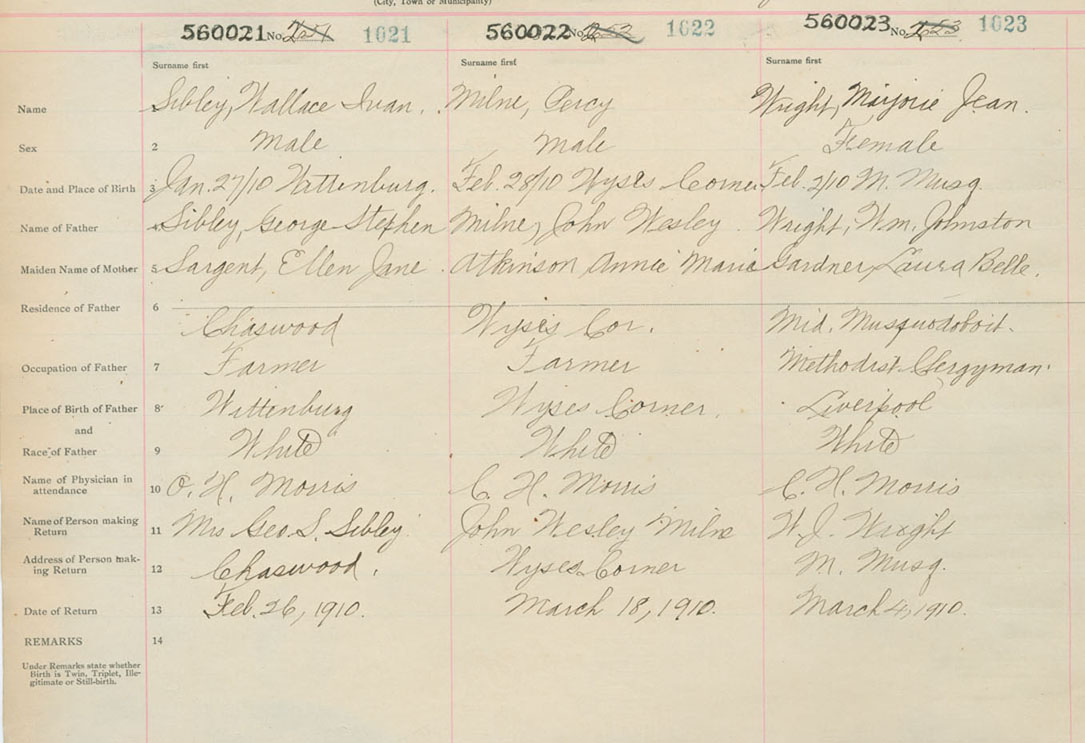 (City, Town or Municipality)
560021 No. 1621 560022 No. 1622 560023 No. 1623
Surname first Surname first Surname first
Name Sibley, Wallace Ivan. Milne, Percy Wright, Marjorie Jean.
Sex 2 Male Male Female
Date and Place of Birth 3 Jan. 27/10 Wittenburg. Feb. 28/10 Wyses Corner Feb. 2/10 M. Musq.
Name of Father 4 Sibley, George Stephen Milne, John Wesley Wright, Wm. Johnston
Maiden Name of Mother 5 Sargent, Ellen Jane. Atkinson, Annie Maria Gardner, Laura Belle.
Residence of Father 6 Chaswood Wyses Cor. Mid. Musquodoboit.
Occupation of Father 7 Farmer Farmer Methodist Clergyman.
Place of Birth of Father 8 Wittenburg Wyses Corner. Liverpool
and
Race of Father 9 White White White
Name of Physician in
attendance 10 C. H. Morris C. H. Morris C. H. Morris
Name of Person making
Return 11 Mrs Geo S. Sibley John Wesley Milne W. J. Wright
Address of Person mak-
ing Return 12 Chaswood. Wyses Corner M. Musq.
Date of Return 13 Feb. 26, 1910. March 18, 1910. March 4, 1910.
REMARKS 14
Under Remarks state whether
Birth is Twin, Triplet, Ille-
gitimate or Still-birth.